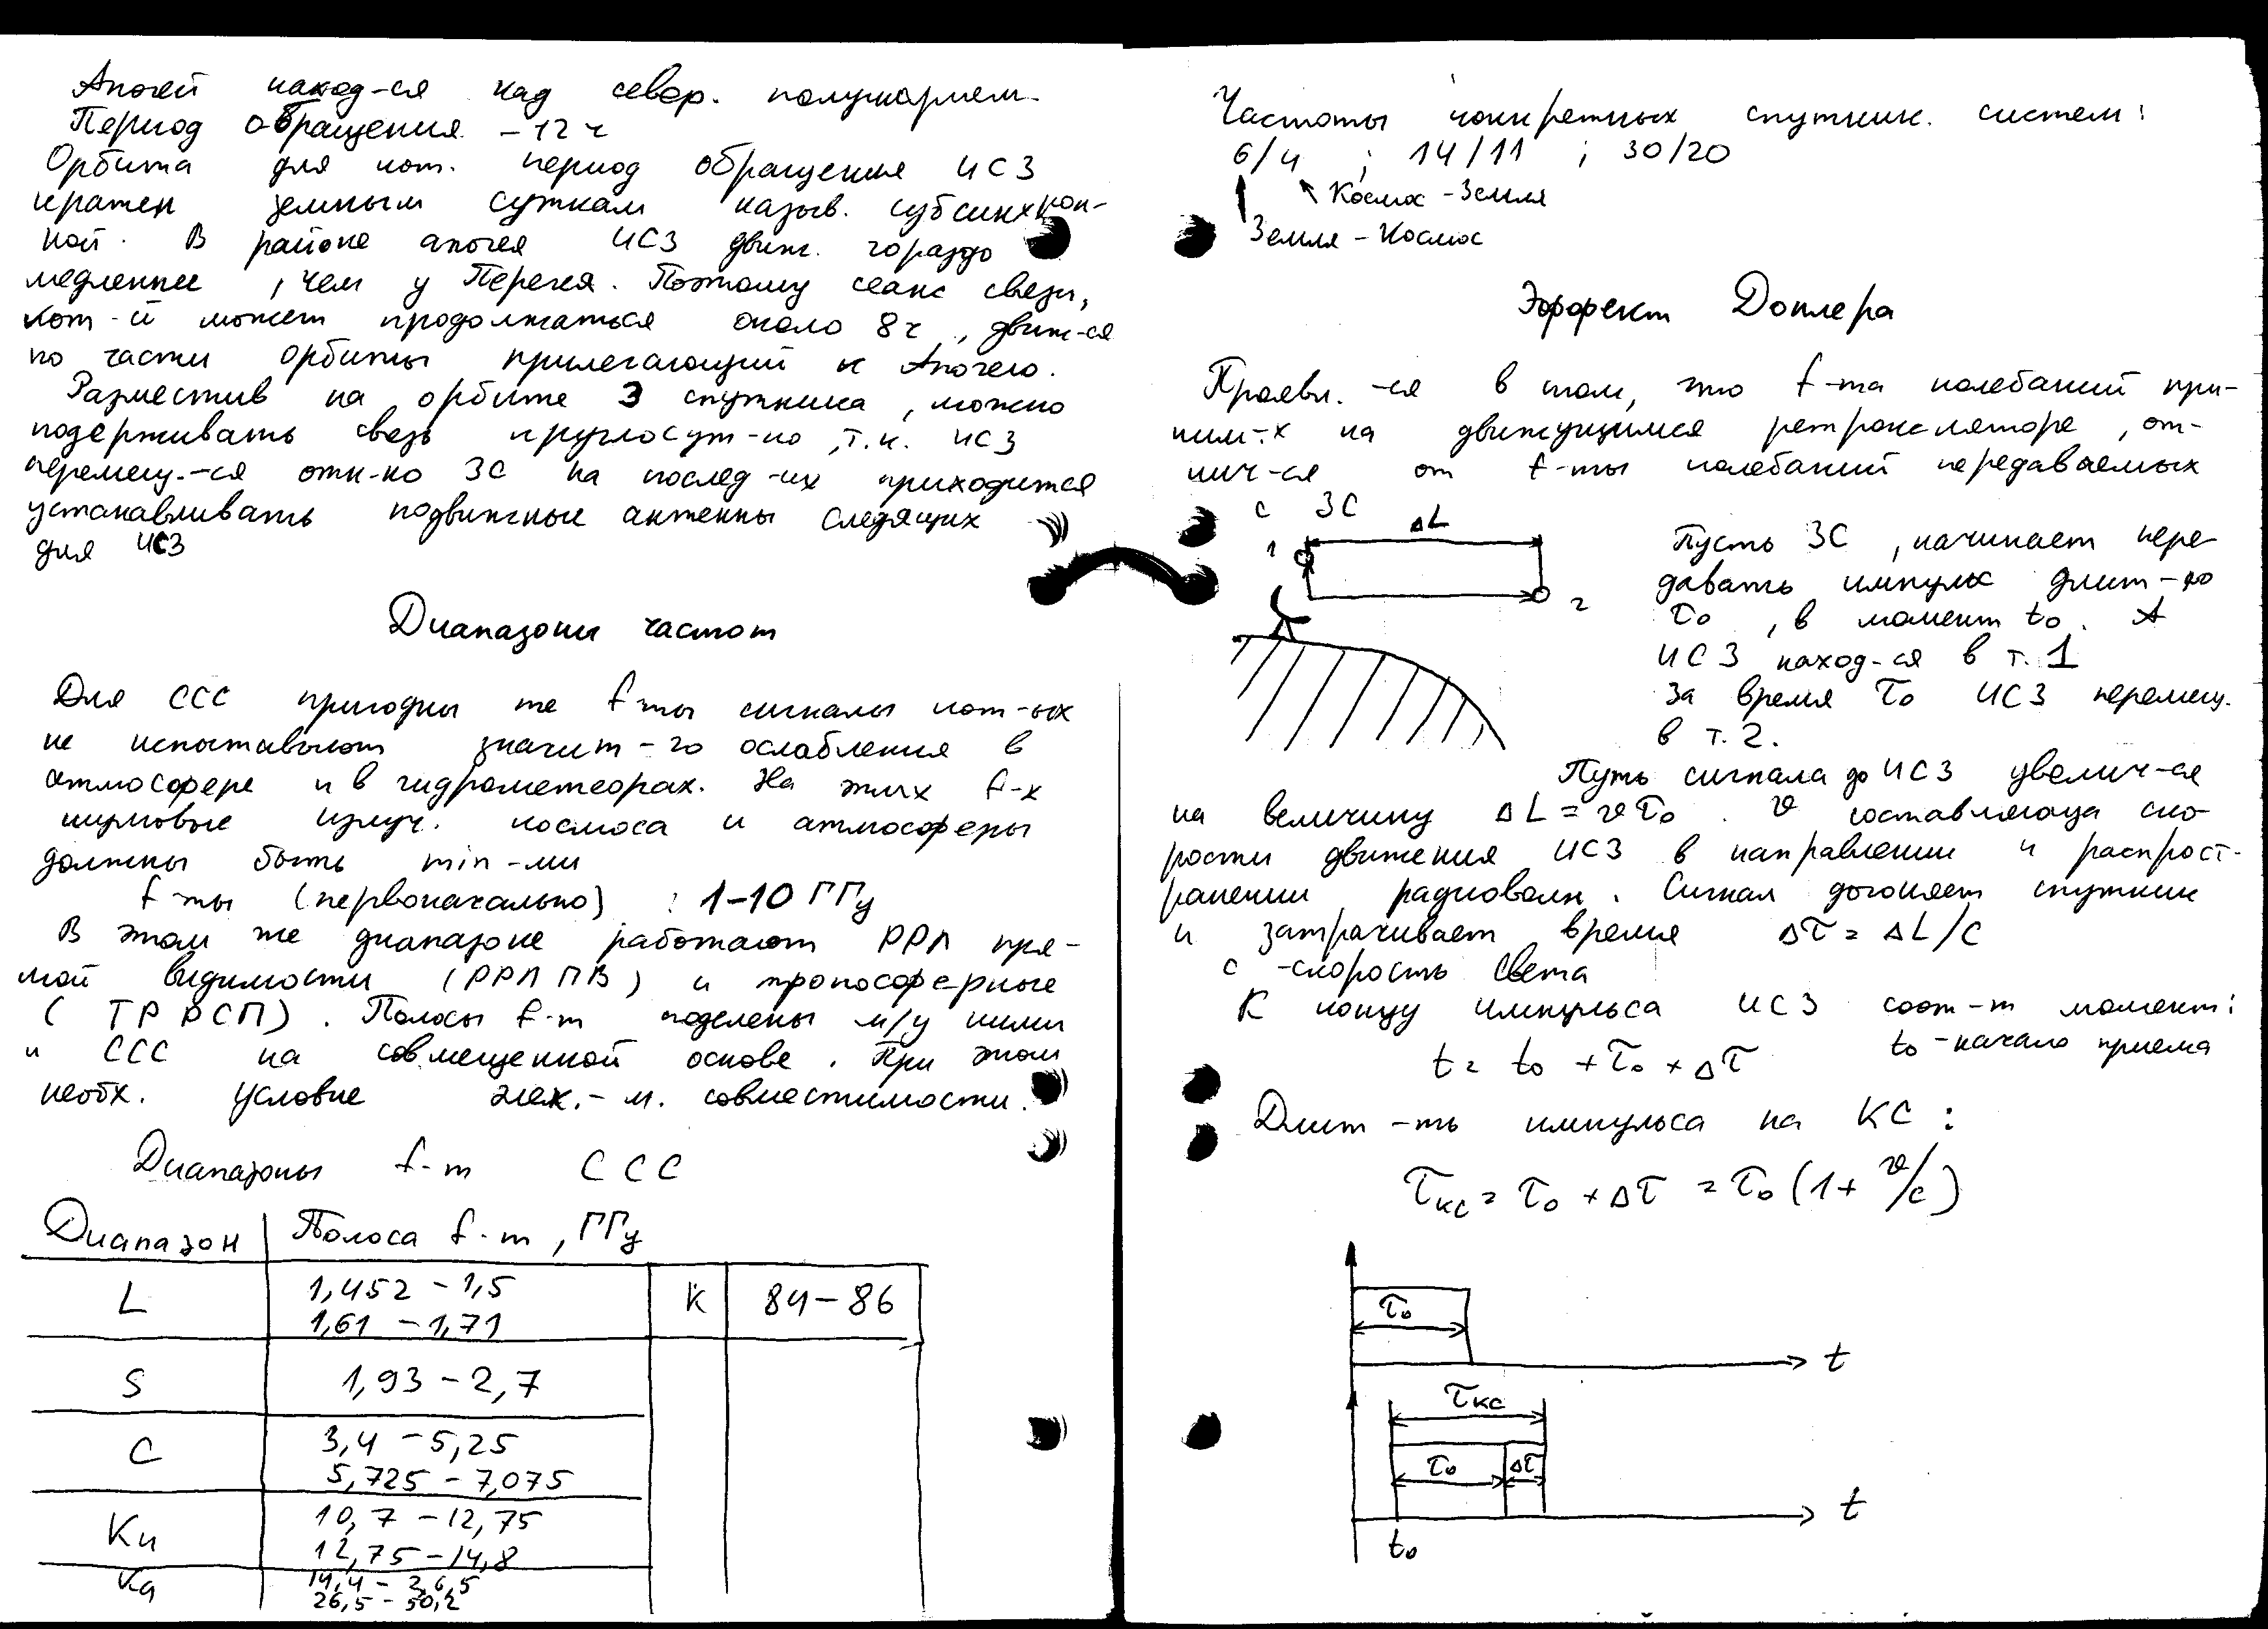 Апогей наход-ся над север. полушарием.
Период обращения – 12 ч
Орбита для кот. период обращения ИСЗ
кратен земным суткам назыв. субсинхрон-
ной. В районе апогея ИСЗ движ. гораздо
медленнее, чем у Перегея. Поэтому сеанс связи,
кот-й может продолжаться около 8ч, движ-ся
по части орбиты прилегающий к Апогею.
Разместив на орбите 3 спутника, можно
подерживать связь круглосут-но, т.к. ИСЗ
перемещ.-ся отн-но ЗС на послед-их приходится
устанавливать подвижные антенны следящих
для ИСЗ
Диапазоны частот
Для ССС пригодны те f-ты сигналы кот-ых
не испытывают значит-го ослабления в
атмосфере и в гидрометеорах. На этих f-х
шумовые излуч. космоса и атмосферы
должны быть min-ми
f-ты (первоначально) : 1–10 ГГц
В этом же диапазоне работают РРЛ пря-
мой видимости (РРЛ ПВ) и тропосферные
(ТР РСП). Полосы f-т поделены м/у ними
и ССС на совмещенной основе. При этом
необх. условие элек.-м. совместимости.
Диапазоны f-т ССС
Диапазон Полоса f-т, ГГц
L 1,452 – 1,5 K 84–86
1,61 – 1,71
S 1,93 – 2,7
C 3,4 – 5,25
5,725 – 7,075
Ku 10,7 – 12,75
12,75 – 14,8
Ka 14,4 – 26,5
26,5 – 50,2
Частоты конкретных спутник. систем:
6/4 ; 14/11 ; 30/20
Космос – Земля
Земля – Космос
Эффект Доплера
Проявл.-ся в том, что f-та колебаний при-
ним-х на движущимся ретрансляторе, от-
лич-ся от f-ты колебаний передаваемых
с ЗС
ΔL
1
2
Пусть ЗС, начинает пере-
давать импульс длит-ю
τ₀, в момент t₀. А
ИСЗ наход-ся в т. 1
За время τ₀ ИСЗ перемещ.
в т. 2.
Путь сигнала до ИСЗ увелич-ся
на величину ΔL = vτ₀. v составляюща ско-
рости движения ИСЗ в направлении и распрост-
ранении радиоволн. Сигнал догоняет спутник
и затрачивает время Δτ = ΔL/c
c – скорость света
К концу импульса ИСЗ соот-т момент:
t = t₀ + τ₀ + Δτ t₀ – начало приема
Длит-ть импульса на КС:
τкс = τ₀ + Δτ = τ₀ (1 + v/c)
τ₀
t
τкс
τ₀ Δτ
t
t₀